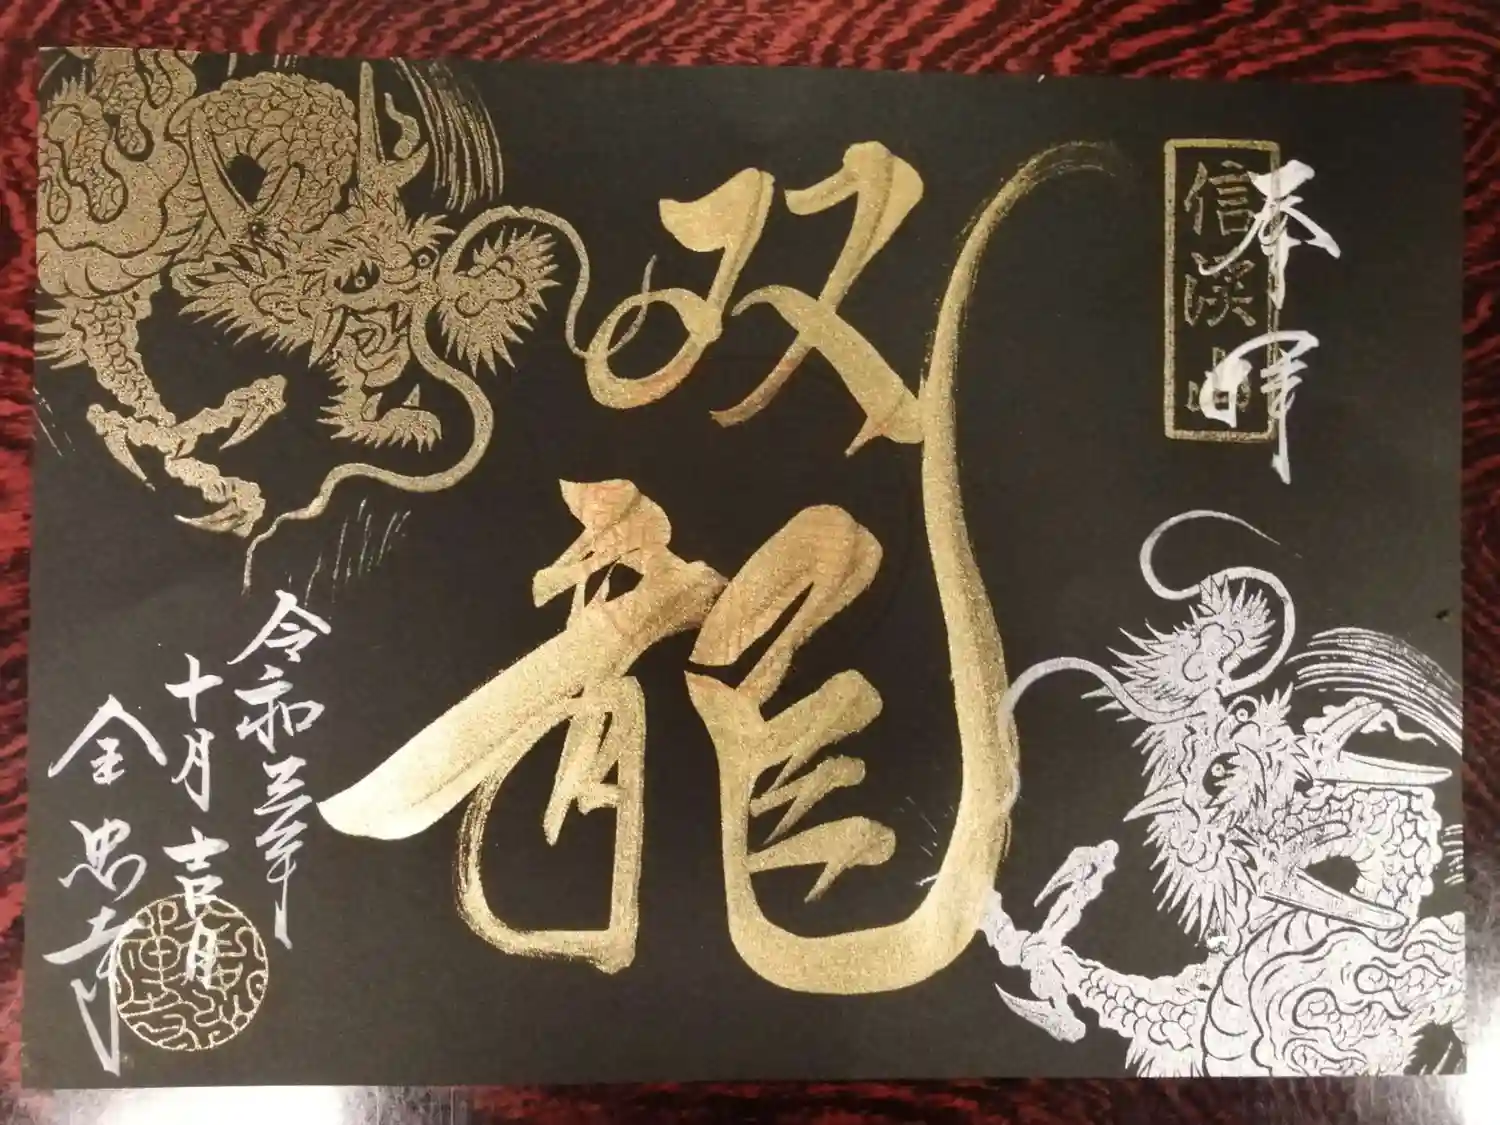 奉拝
信渓山
双龍
令和三年
十月吉日
全忠寺